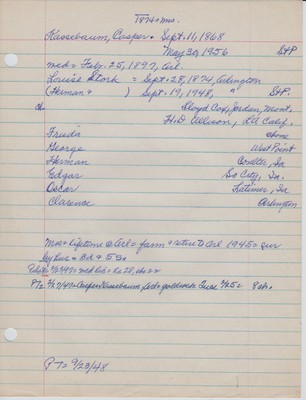 1874 + mo.
Kassebaum, Casper. Sept. 11, 1868
May 30, 1956 D+P
md = Feb. 25, 1897, Arl.
Louise Stork = Sept. 28, 1874, Arlington
(Herman + ) Sept. 19, 1948, " D+P
Ch Lloyd Cox, Jordan, Mont.
H.D. Allison, LA Calif.
Frieda @home
George West Point
Herman Coulter, Ia
Edgar So City, Ia.
Oscar Latimer, Ia
Clarence Arlington
Mo = Lifetime @ Arl = farm + retire to Arl 1945 = sur
by hus = 8d + 5s.
2/27/47 = md
PT = 2/27/47 = Casper Kassebaum, = golden 2/25 = 8 ch.
PT = 9/23/48